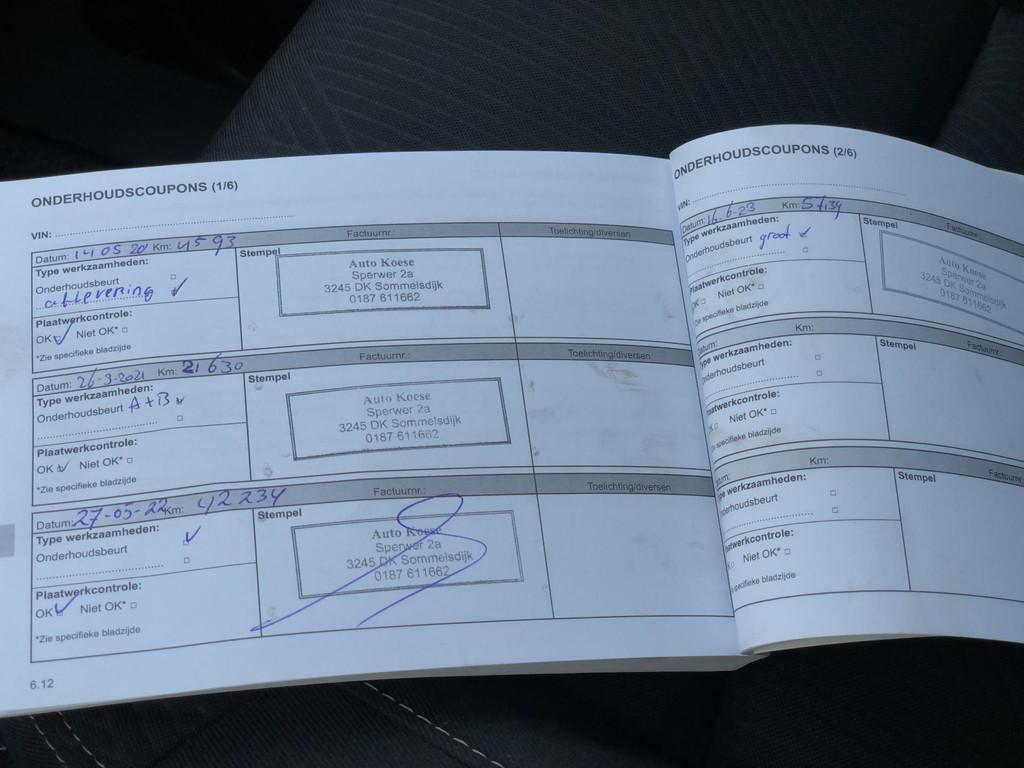 ONDERHOUDSCOUPONS (1/6)
VIN:
Datum: 14 05 20 Km: 4593 Factuurnr.: Toelichting/diversen
Type werkzaamheden:
Onderhoudsbeurt
aflevering
Plaatwerkcontrole:
OK Niet OK*
*Zie specifieke bladzijde
Stempel
Auto Koese
Sperwer 2a
3245 DK Sommelsdijk
0187 611662
Datum: 26-3-2021 Km: 21630 Factuurnr.: Toelichting/diversen
Type werkzaamheden:
Onderhoudsbeurt A+B
Plaatwerkcontrole:
OK Niet OK*
*Zie specifieke bladzijde
Stempel
Auto Koese
Sperwer 2a
3245 DK Sommelsdijk
0187 611662
Datum: 27-05-22 Km: 42234 Factuurnr.: Toelichting/diversen
Type werkzaamheden:
Onderhoudsbeurt
Plaatwerkcontrole:
OK Niet OK*
*Zie specifieke bladzijde
Stempel
Auto Koese
Sperwer 2a
3245 DK Sommelsdijk
0187 611662
6.12
ONDERHOUDSCOUPONS (2/6)
VIN:
Datum: 16-6-23 Km: Factuurnr.:
Type werkzaamheden:
Onderhoudsbeurt groot
Plaatwerkcontrole:
OK Niet OK*
*Zie specifieke bladzijde
Stempel
Auto Koese
Sperwer 2a
3245 DK Sommelsdijk
0187 611662
Datum: Km: Factuurnr.:
Type werkzaamheden:
Onderhoudsbeurt
Plaatwerkcontrole:
OK Niet OK*
*Zie specifieke bladzijde
Stempel
Datum: Km: Factuurnr.
Type werkzaamheden:
Onderhoudsbeurt
Plaatwerkcontrole:
OK Niet OK*
*Zie specifieke bladzijde
Stempel